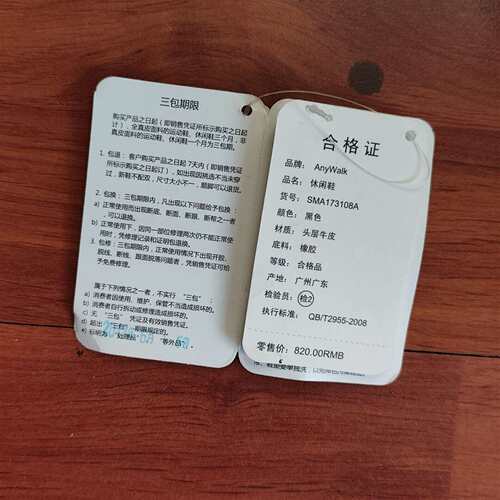 三包期限
购买产品之日起(即销售凭证所标示购买之日起
计)、全真皮面料的运动鞋、休闲鞋三个月,非
真皮面料的运动鞋、休闲鞋一个月为三包期。
1. 包退:客户购买产品之日起7天内(即销售凭证
所标示购买之日起订)。如出现因挑选不当未穿
过,新鞋不配双,尺寸大小不一,顺脚可以退货。
2. 包换:三包期限内,凡出现以下问题给予包换:
a) 正常使用而出现断底、断面、断跟、断帮之一者
,可以退换。
b) 正常使用下,因同一部位修理两次仍不能正常使
用时,凭修理记录和证明包退换。
3. 包修:三包期限内,正常使用情况下出现开胶、
脱线、断线、跟面脱等问题者,凭销售凭证可给
予免费修理。
属于下列情况之一者,不实行“三包”:
a) 消费者因使用、维护、保管不当造成损坏的。
b) 消费者自行拆动或修理造成损坏的。
c) 无“三包”凭证及有效销售凭证。
d) 超出“三包”期限规定的。
e) 标明为“处理品”“等外品”
合格证
品牌: AnyWalk
品名: 休闲鞋
货号: SMA173108A
颜色: 黑色
材质: 头层牛皮
底料: 橡胶
等级: 合格品
产地: 广州广东
检验员: 检2
执行标准: QB/T2955-2008
零售价: 820.00RMB